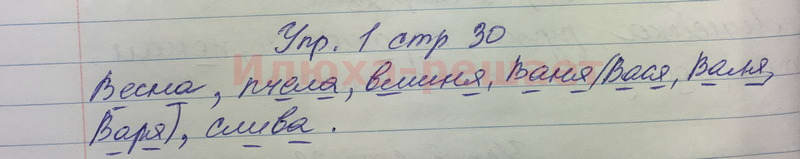 Упр. 1 стр 30
Весна, пчела, вишня, Ваня (Вася, Валя,
Варя), слива.